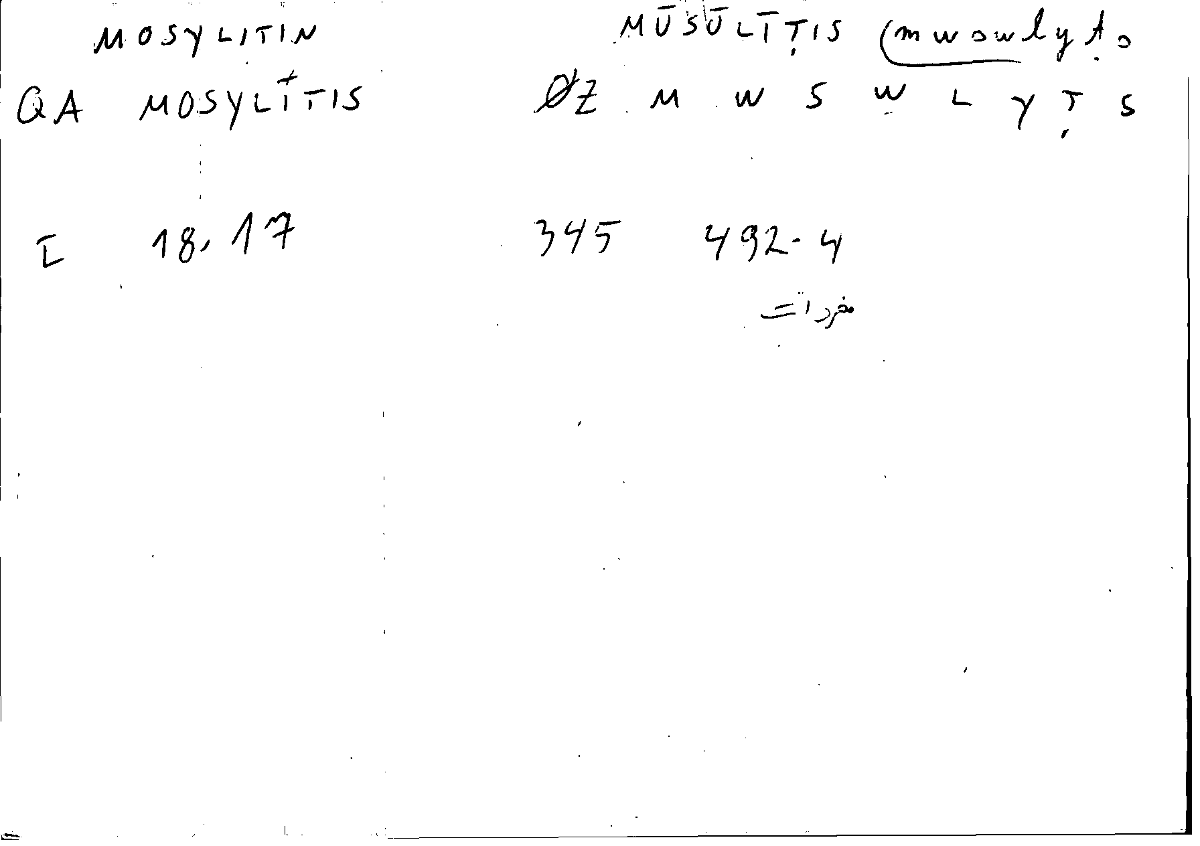 MOSYLITIN MŪSŪLĪṬIS (mwswlyṭs
QA MOSYLĪTIS ØZ M W S W L Y Ṭ S
I 18,17 345 492-4
مفردات